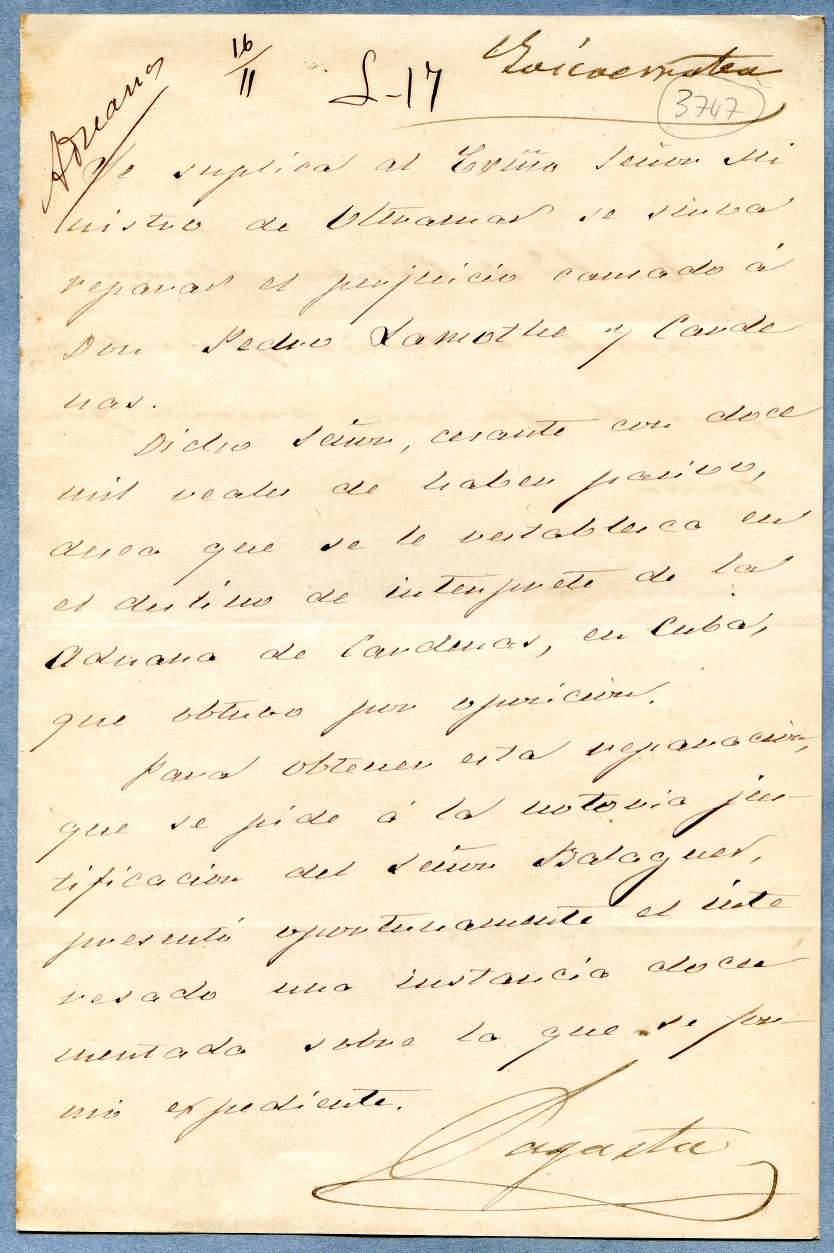 Aduanas
16/11
L-17
Goicoerrotea
3747
Se suplica al Exmo Señor Mi
nistro de Ultramar se sirva
reparar el perjuicio causado á
Don Pedro Lamothe y Carde
nas.
Dicho Señor, cesante con doce
mil reales de haber pasivo,
desea que se le restablesca en
el destino de interprete de la
Aduana de Cardenas, en Cuba,
que obtuvo por oposicion.
Para obtener esta reparacion,
que se pide á la notoria jus-
tificacion del Señor Balaguer,
presentó oportunamente el inte
resado una instancia docu
mentada sobre la que se for-
mó expediente.
Sagasta